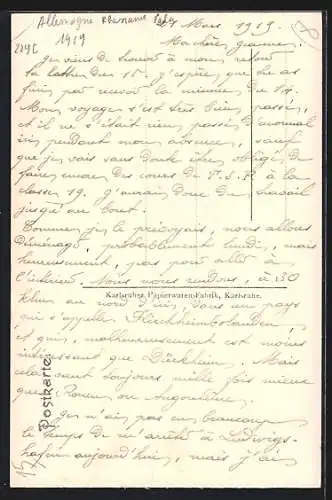 Allemagne Rhénanie
1919
Mars 1919.
Ma chère Jeanne.
Je viens de trouver à mon retour
ta lettre du 15. J'espère, que tu as
fini par recevoir la mienne du
Mon voyage s'est très bien passé,
et il ne s'était rien passé d'anormal
ici pendant mon absence, sauf
que je vais sans doute être obligé de
faire encore des cours de T.S.F. à la
classe 19. J'aurai donc du travail
jusqu'au bout.
Comme je le prévoyais, nous allons
déménager, probablement lundi, mais
heureusement, pas pour aller à
l'intérieur. Nous nous rendons, à 30
Karlsruher Papierwaren-Fabrik, Karlsruhe.
klm au nord d'ici, dans un pays
qui s'appelle Kirchheimbolanden,
et qui, malheureusement est moins
intéressant que Dürkheim. Mais
cela vaut toujours mille fois mieux
que Rouen ou Angoulême.
Postkarte
Je n'ai pas eu beaucoup
le temps de m'arrêter à Ludwigs-
hafen aujourd'hui, mais j'ai